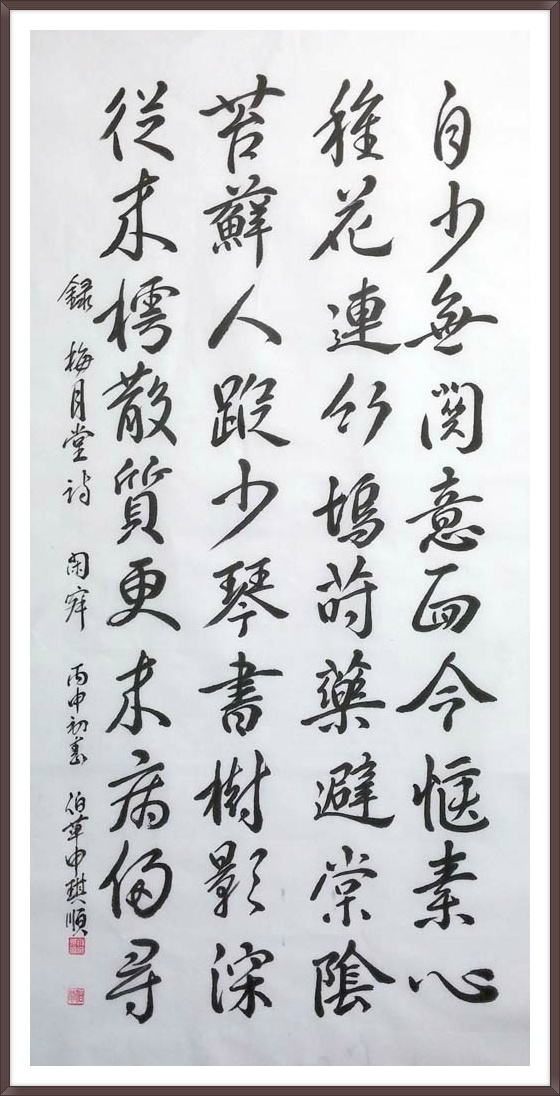 自少無関意而今愜素心
種花連竹塢蒔藥避棠陰
苔蘚人蹤少琴書樹影深
從來樗散質更來病侵尋
錄 梅月堂詩 閑寂 丙申初春 申琪順